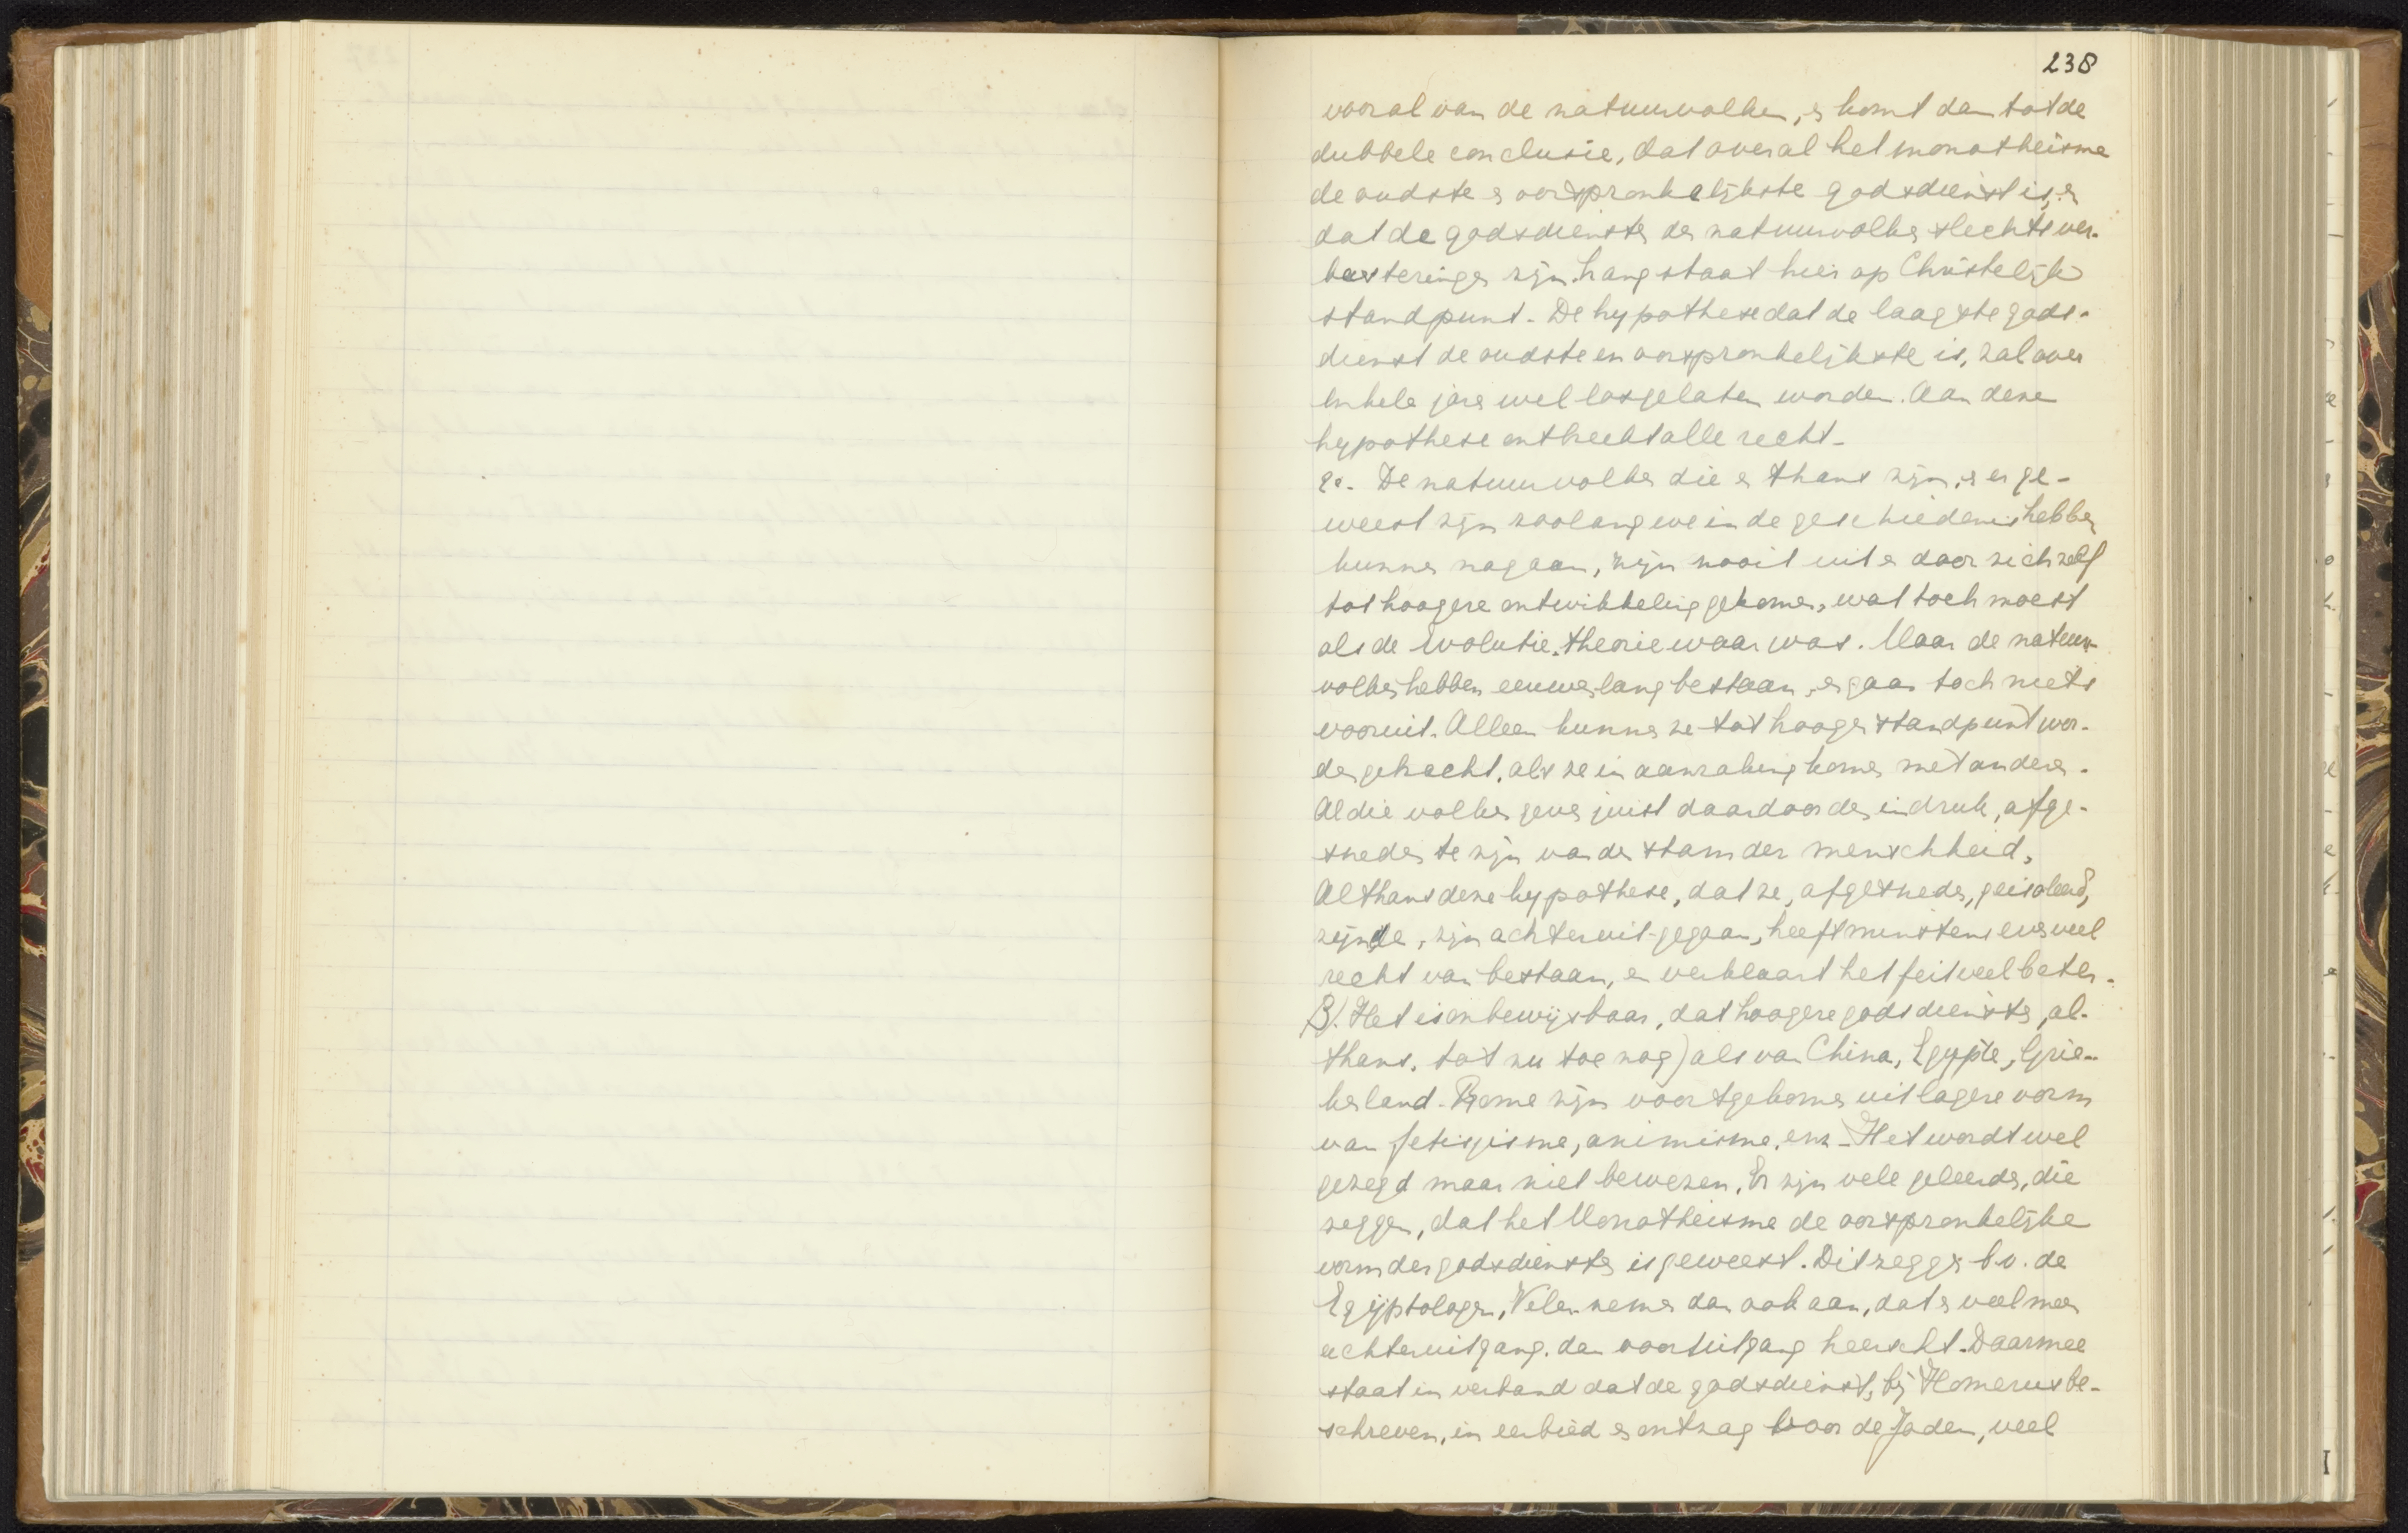 238
vooral van de natuurvolken, en komt dan tot de
dubbele conclusie, dat overal het monotheisme
de oudste en oorspronkelijkste godsdienst is, en
dat de godsdiensten der natuurvolken slechts ver-
basteringen zijn. Lang staat hier op Christelijk
standpunt. De hypothese dat de laagste gods-
dienst de oudste en oorspronkelijkste is, zal over
enkele jaren wel losgelaten worden. Aan deze
hypothese ontbreekt alle recht.
2e. De natuurvolken die er thans zijn, en er ge-
weest zijn zoolang we in de geschiedenis hebben
kunnen nagaan, zijn nooit uit en door zichzelf
tot hoogere ontwikkeling gekomen, wat toch moest
als de Evolutie-theorie waar was. Maar de natuur-
volken hebben eeuwenlang bestaan, en gaan toch niets
vooruit. Alleen kunnen ze tot hooger standpunt wor-
den gebracht, als ze in aanraking komen met anderen.
Al die volken geven juist daardoor den indruk, afge-
sneden te zijn van den stam der menschheid.
Althans deze hypothese, dat ze, afgesneden, geisoleerd,
zijnde, zijn achteruit-gegaan, heeft minstens evenveel
recht van bestaan, en verklaart het feit veel beter.
3). Het is onbewijsbaar, dat hoogere godsdiensten, al-
thans, tot nu toe nog) als van China, Egypte, Grie-
kenland. Rome zijn voortgekomen uit lagere vorm
van fetisjisme, animisme, enz. Het wordt wel
gezegd maar niet bewezen. Er zijn vele geleerden, die
zeggen, dat het Monotheisme de oorspronkelijke
vorm der godsdiensten is geweest. Dit zeggen b.v. de
Egijptologen. Velen nemen dan ook aan, dat er veel meer
achteruitgang dan vooruitgang heerscht. Daarmee
staat in verband dat de godsdienst, bij Homerus be-
schreven, in eerbied en ontzag voor de Goden, veel